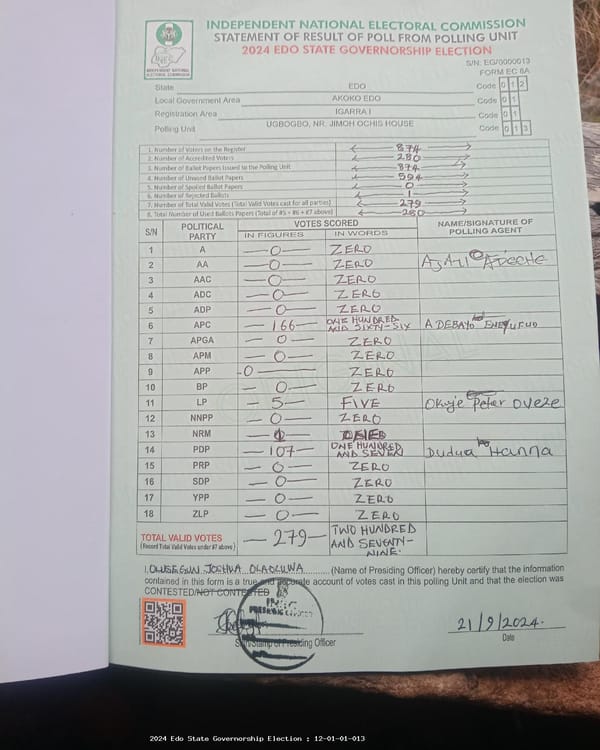 INDEPENDENT NATIONAL ELECTORAL COMMISSION
STATEMENT OF RESULT OF POLL FROM POLLING UNIT
2024 EDO STATE GOVERNORSHIP ELECTION
INEC
INDEPENDENT NATIONAL ELECTORAL COMMISSION
S/N: EG/0000013
FORM EC 8A
State EDO Code 0 1 2
Local Government Area AKOKO EDO Code 0 1
Registration Area IGARRA I Code 0 1
Polling Unit UGBOGBO, NR. JIMOH OCHIS HOUSE Code 0 1 3
1. Number of Voters on the Register 874
2. Number of Accredited Voters 280
3. Number of Ballot Papers Issued to the Polling Unit 874
4. Number of Unused Ballot Papers 594
5. Number of Spoiled Ballot Papers 0
6. Number of Rejected Ballots 1
7. Number of Total Valid Votes (Total Valid Votes cast for all parties) 279
8. Total Number of Used Ballots Papers (Total of #5 + #6 + #7 above) 280
S/N POLITICAL PARTY VOTES SCORED NAME/SIGNATURE OF POLLING AGENT
IN FIGURES IN WORDS
1 A 0 ZERO
2 AA 0 ZERO
3 AAC 0 ZERO
4 ADC 0 ZERO
5 ADP 0 ZERO
6 APC 166 ONE HUNDRED AND SIXTY-SIX ADEBAYO
7 APGA 0 ZERO
8 APM 0 ZERO
9 APP 0 ZERO
10 BP 0 ZERO
11 LP 5 FIVE Peter
12 NNPP 0 ZERO
13 NRM
14 PDP 107 ONE HUNDRED AND SEVEN Hanna
15 PRP 0 ZERO
16 SDP 0 ZERO
17 YPP 0 ZERO
18 ZLP 0 ZERO
TOTAL VALID VOTES 279 TWO HUNDRED AND SEVENTY-NINE.
(Record Total Valid Votes under #7 above)
I, OLUSEGUN JOSHUA OLAOLUWA (Name of Presiding Officer) hereby certify that the information
contained in this form is a true and accurate account of votes cast in this polling Unit and that the election was
CONTESTED/NOT CONTESTED
INEC
PRESIDING OFFICER
Sign/Stamp of Presiding Officer
21/9/2024.
Date
2024 Edo State Governorship Election : 12-01-01-013